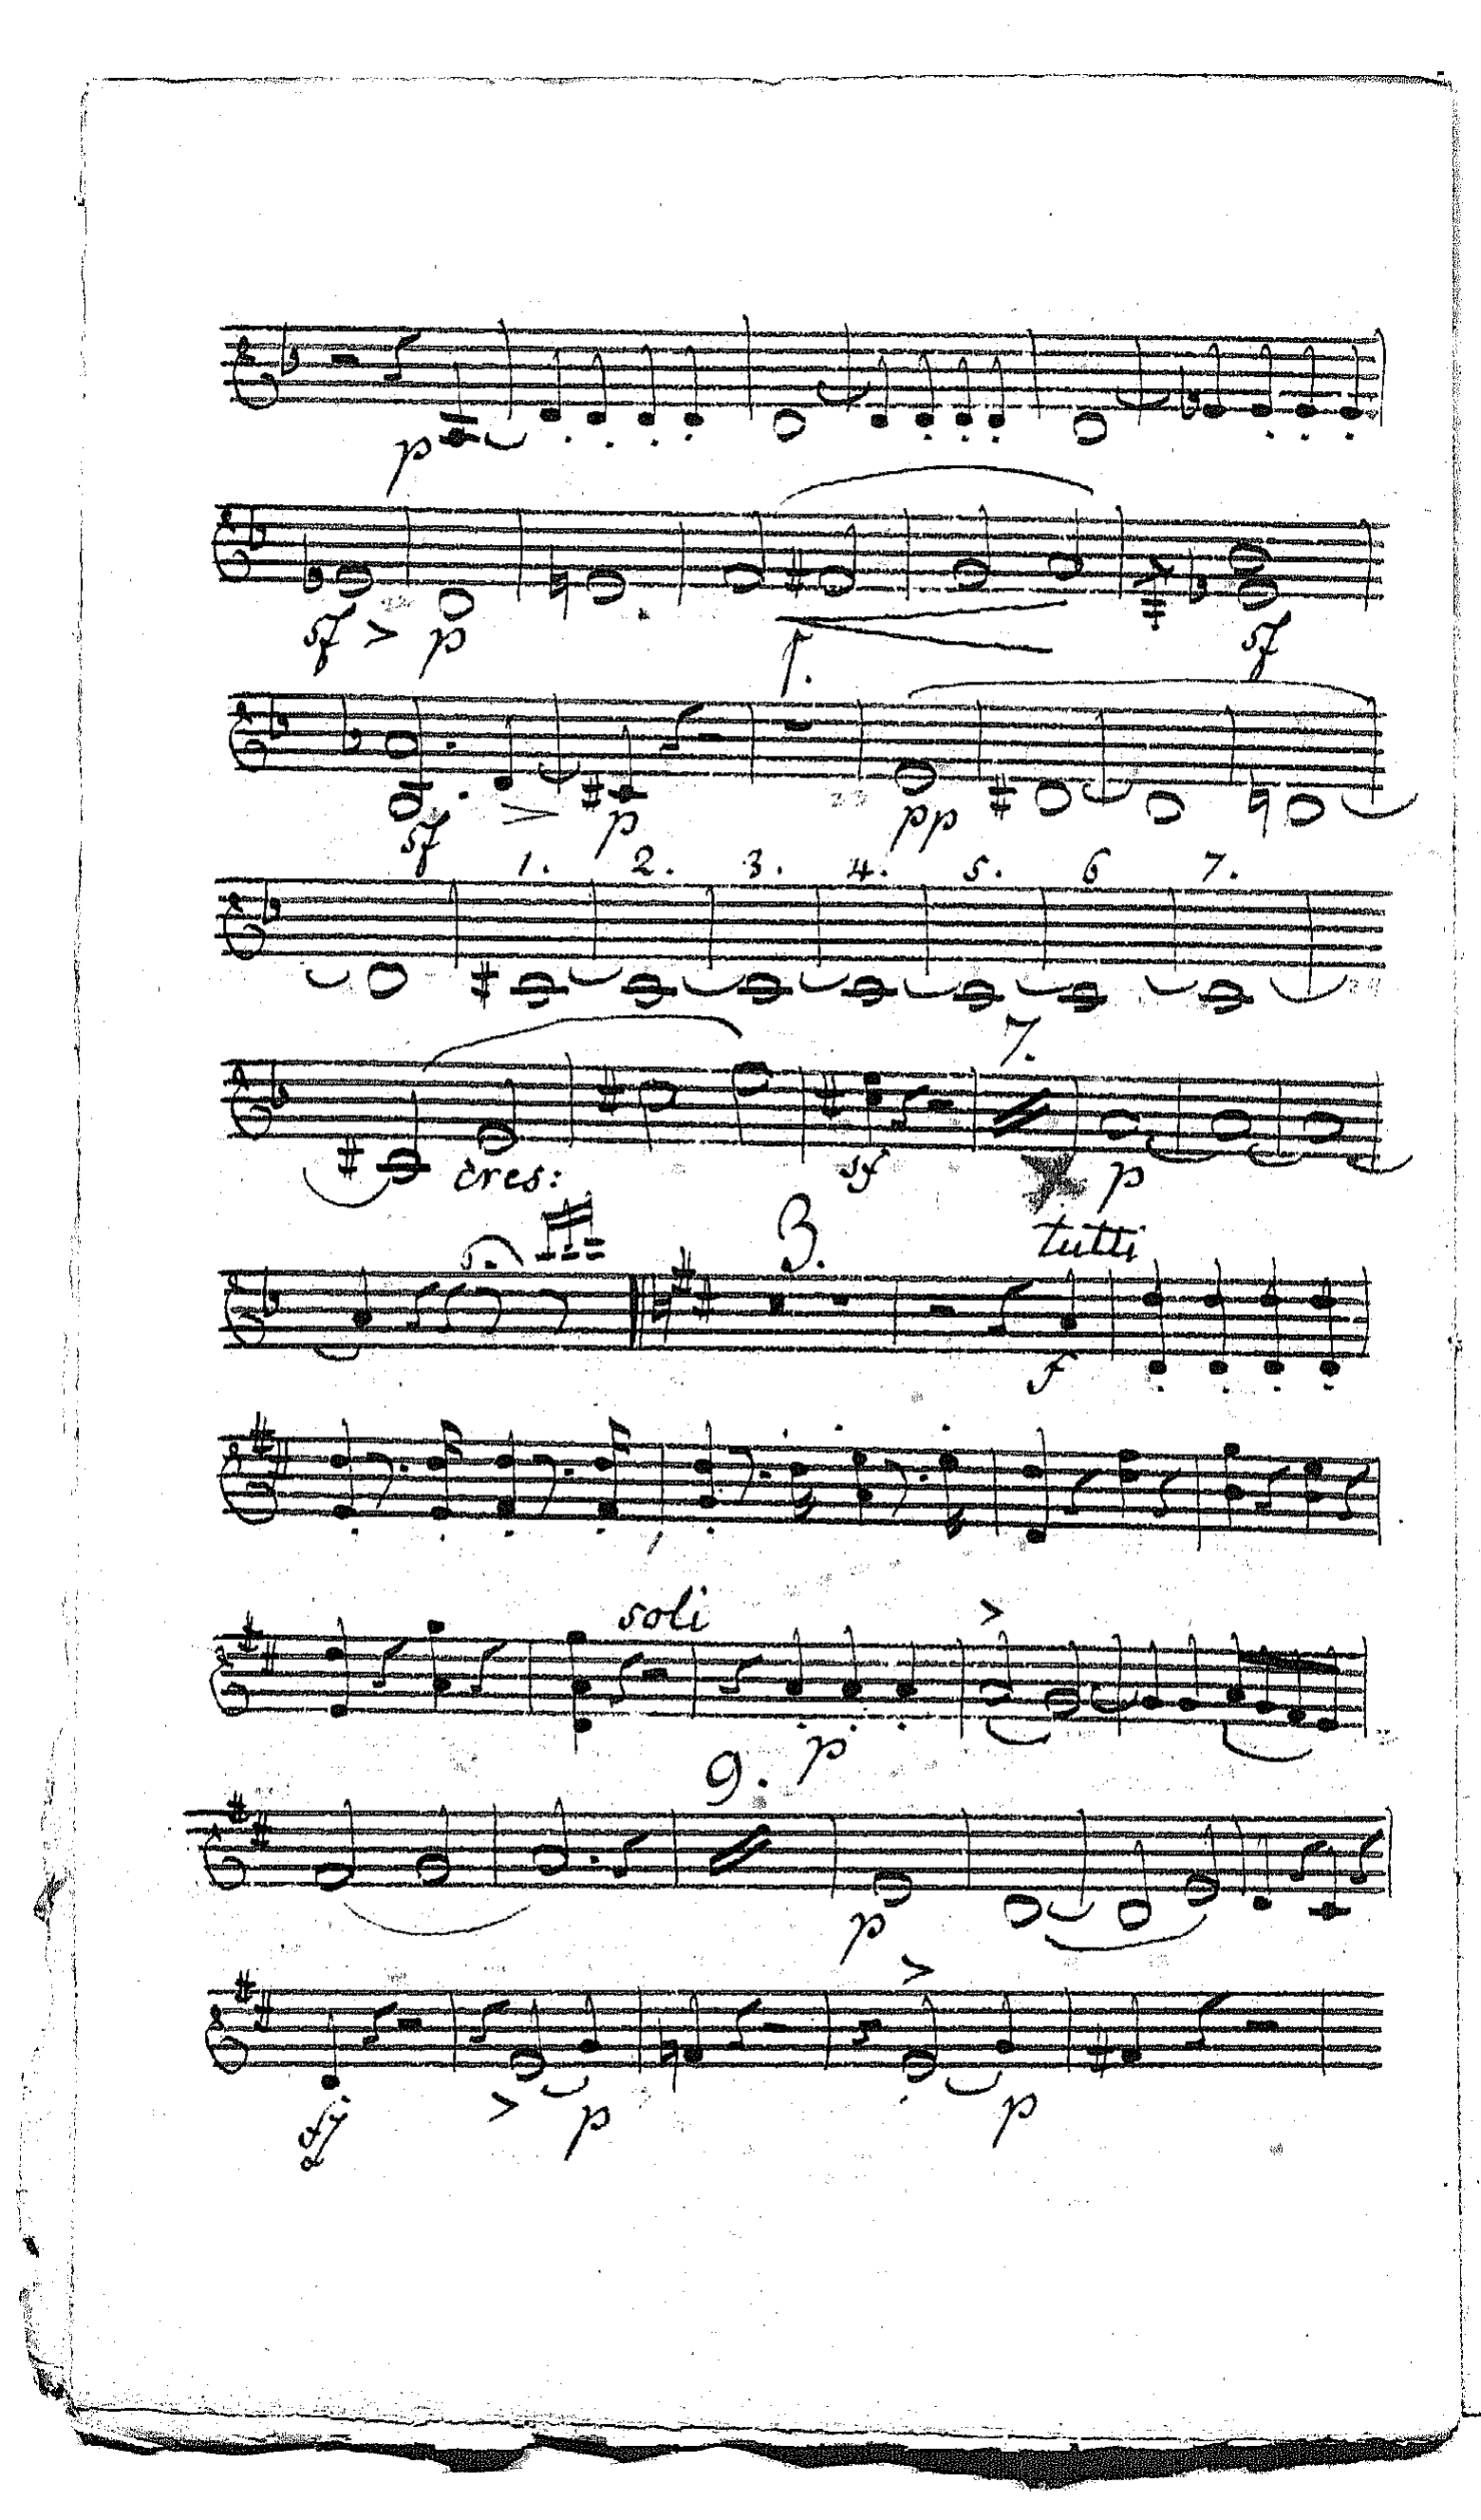 p
sf p
1.
sf
sf p pp
1. 2. 3. 4. 5. 6 7.
7.
cres: sf p
5. 3. tutti
f
soli
p
9.
p
p p